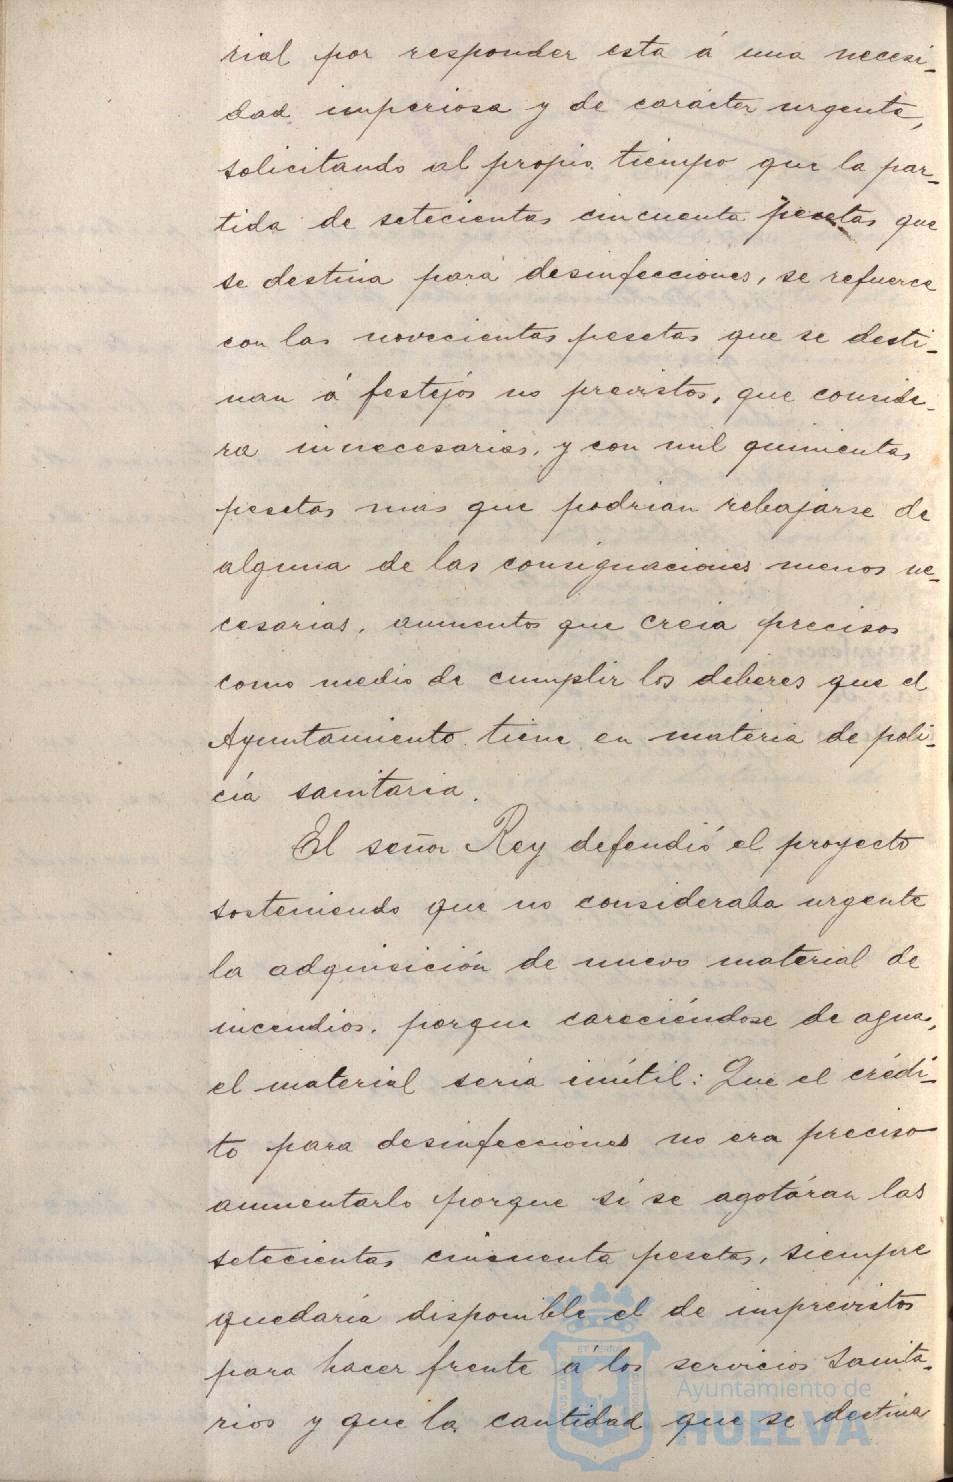 rial por responder esta á una necesi-
dad imperiosa y de carácter urgente,
solicitando al propio tiempo que la par-
tida de setecientas cincuenta pesetas que
se destina para desinfecciones, se refuerce
con las novecientas pesetas que se desti-
nan á festejos no previstos, que conside-
ra innecesarias, y con mil quinientas
pesetas mas que podrian rebajarse de
alguna de las consignaciones menos ne-
cesarias, aumentos que creia precisos
como medio de cumplir los deberes que el
Ayuntamiento tiene en materia de poli-
cía sanitaria.
El señor Rey defendió el proyecto
sosteniendo que no consideraba urgente
la adquisición de nuevo material de
incendios, porque careciéndose de agua,
el material seria inútil: Que el crédi-
to para desinfecciones no era preciso
aumentarlo porque si se agotáran las
setecientas cincuenta pesetas, siempre
quedaria disponible el de imprevistos
para hacer frente á los servicios sanita-
rios y que la cantidad que se destina
Ayuntamiento de
HUELVA